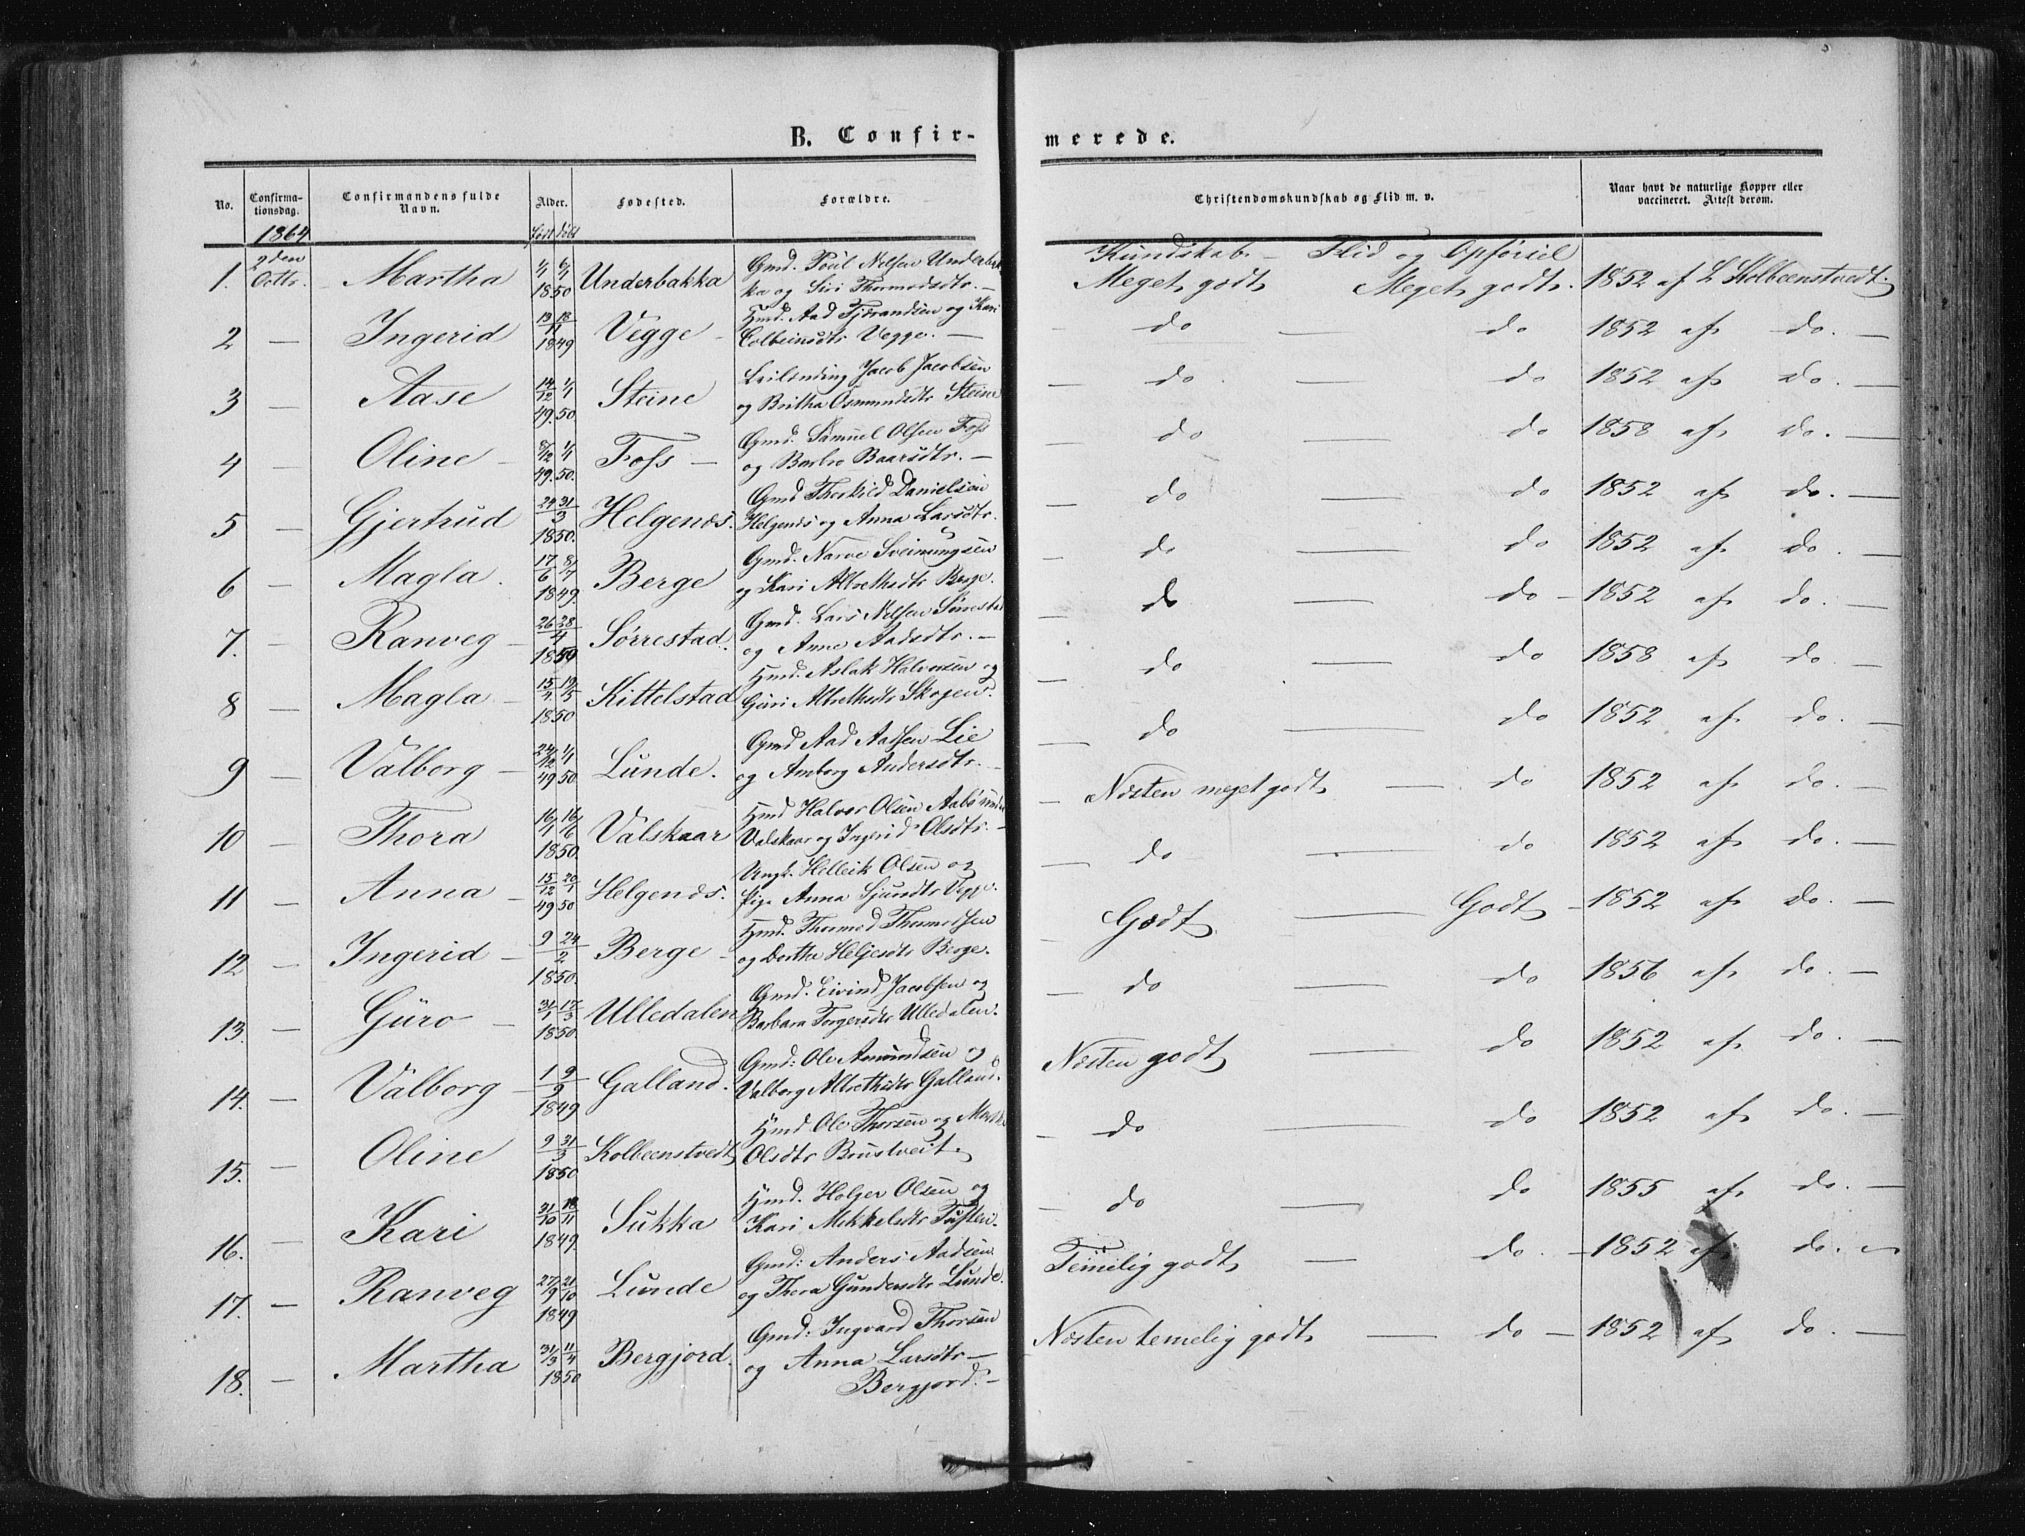 B. Confir-
merede.
No.
Confirma-
tionsdag.
Confirmandens fulde
Navn.
Alder.
Fødested.
Forældre.
Christendomskundskab og Flid m. v.
Naar havt de naturlige Kopper eller
vaccineret. Attest derom.
1864
født døbt
Kundskab. — Flid og Opførsel
1. 2den Octbr. — Martha 1/1 6/1 1850 Underbakka Gmd. Poul Nilsen Underbak
ka og Siri Thormodsdtr. — Meget godt Meget godt. 1852 af L Kolbeenstvedt.
2 — Ingerid 13 18/11 1849 Vegge — Hmd. Aad Tjerandsen og Kari
Colbeinsdtr Vegge. — do — do 1852 af do. —
3 — Aase 14/12 1/1 49.50 Steine Leilænding Jacob Jacobsen
og Britha Osmundsdtr Steine — do — do 1852 af do. —
4 — Oline — 8/12 1/1 49.50. Foss — Gmd. Samuel Olsen Foss
og Barbro Baarsdtr. — — do do 1858 af do. —
5 — Gjertrud 24 31/3 1850. Helgenæs. Gmd Thorkild Danielsen
Helgenæs og Anna Larsdtr. — do — do 1852 af do. —
6 — Magla. 17/6 8/7 1849. Berge Gmd. Narve Sveinungsen
og Kari Albrethsdtr Berge. — do — do 1852 af do. —
7. — Ranveg — 26 28/4 1850 Sørrestad. Gmd. Lars Nilsen Sørrestad
og Anne Aadsdtr. — — do — do — 1852 af do. —
8 — Magla — 15/4 19/5 1850 Kittelstad Hmd. Aslak Halvorsen og
Guri Albrethsdtr Skogen. — do — do 1858 af do. —
9 — Valborg — 24/12 1/1 49 50 Lunde. Gmd Aad Aadsen Lie
og Amborg Andersdtr. — — do — do 1852 af do. —
10 — Thora 16/1 16/6 1850. Valskaar Hmd Halvor Olsen
Valskaar og Ingerid Olsdtr. — — Næsten meget godt — do 1852 af do. —
11 — Anna — 15/12 20/1 49 50 Helgenæs. Ungk. Helleik Olsen og
Pige Anna Sjursdtr Vegge. — do — do 1852 af do. —
12 — Ingerid — 9 24/2 1850. Berge — Hmd. Thormod Thormodsen
og Dorthe Heljesdtr Berge. — Godt — Godt — 1852 af do. —
13. — Guro — 31/1 17/3 1850. Ulledalen Gmd. Eivind Jacobsen og
Barbara Torgersdtr Ulledalen. — do — do 1856 af do. —
14. — Valborg — 1 9/9 1849 Galland. Gmd: Ole Amundsen og
Valborg Albrethsdtr Galland. Næsten godt — do 1852 af do. —
15. — Oline 9 31/3 1850 Kolbeenstvedt Hmd Ole Thorsen og
Olsdtr Brustveit. — do — do 1852 af do. —
16. — Kari 21/10 18/11 1849. Sukka Hmd. Holger Olsen og
Kari Mikkelsdtr Tuften. — do — do 1855 af do. —
17. — Ranveg 27/9 21/10 1849 Lunde Gmd: Anders Aadsen
og Thora Gundersdtr Lunde. Temelig godt — do. — 1852 af do. —
18. — Martha 31/3 11/4 1850 Bergjord. Gmd: Ingvard Thorsen
og Anna Larsdtr —
Bergjord. — Næsten temelig godt — do — 1852 af do. —